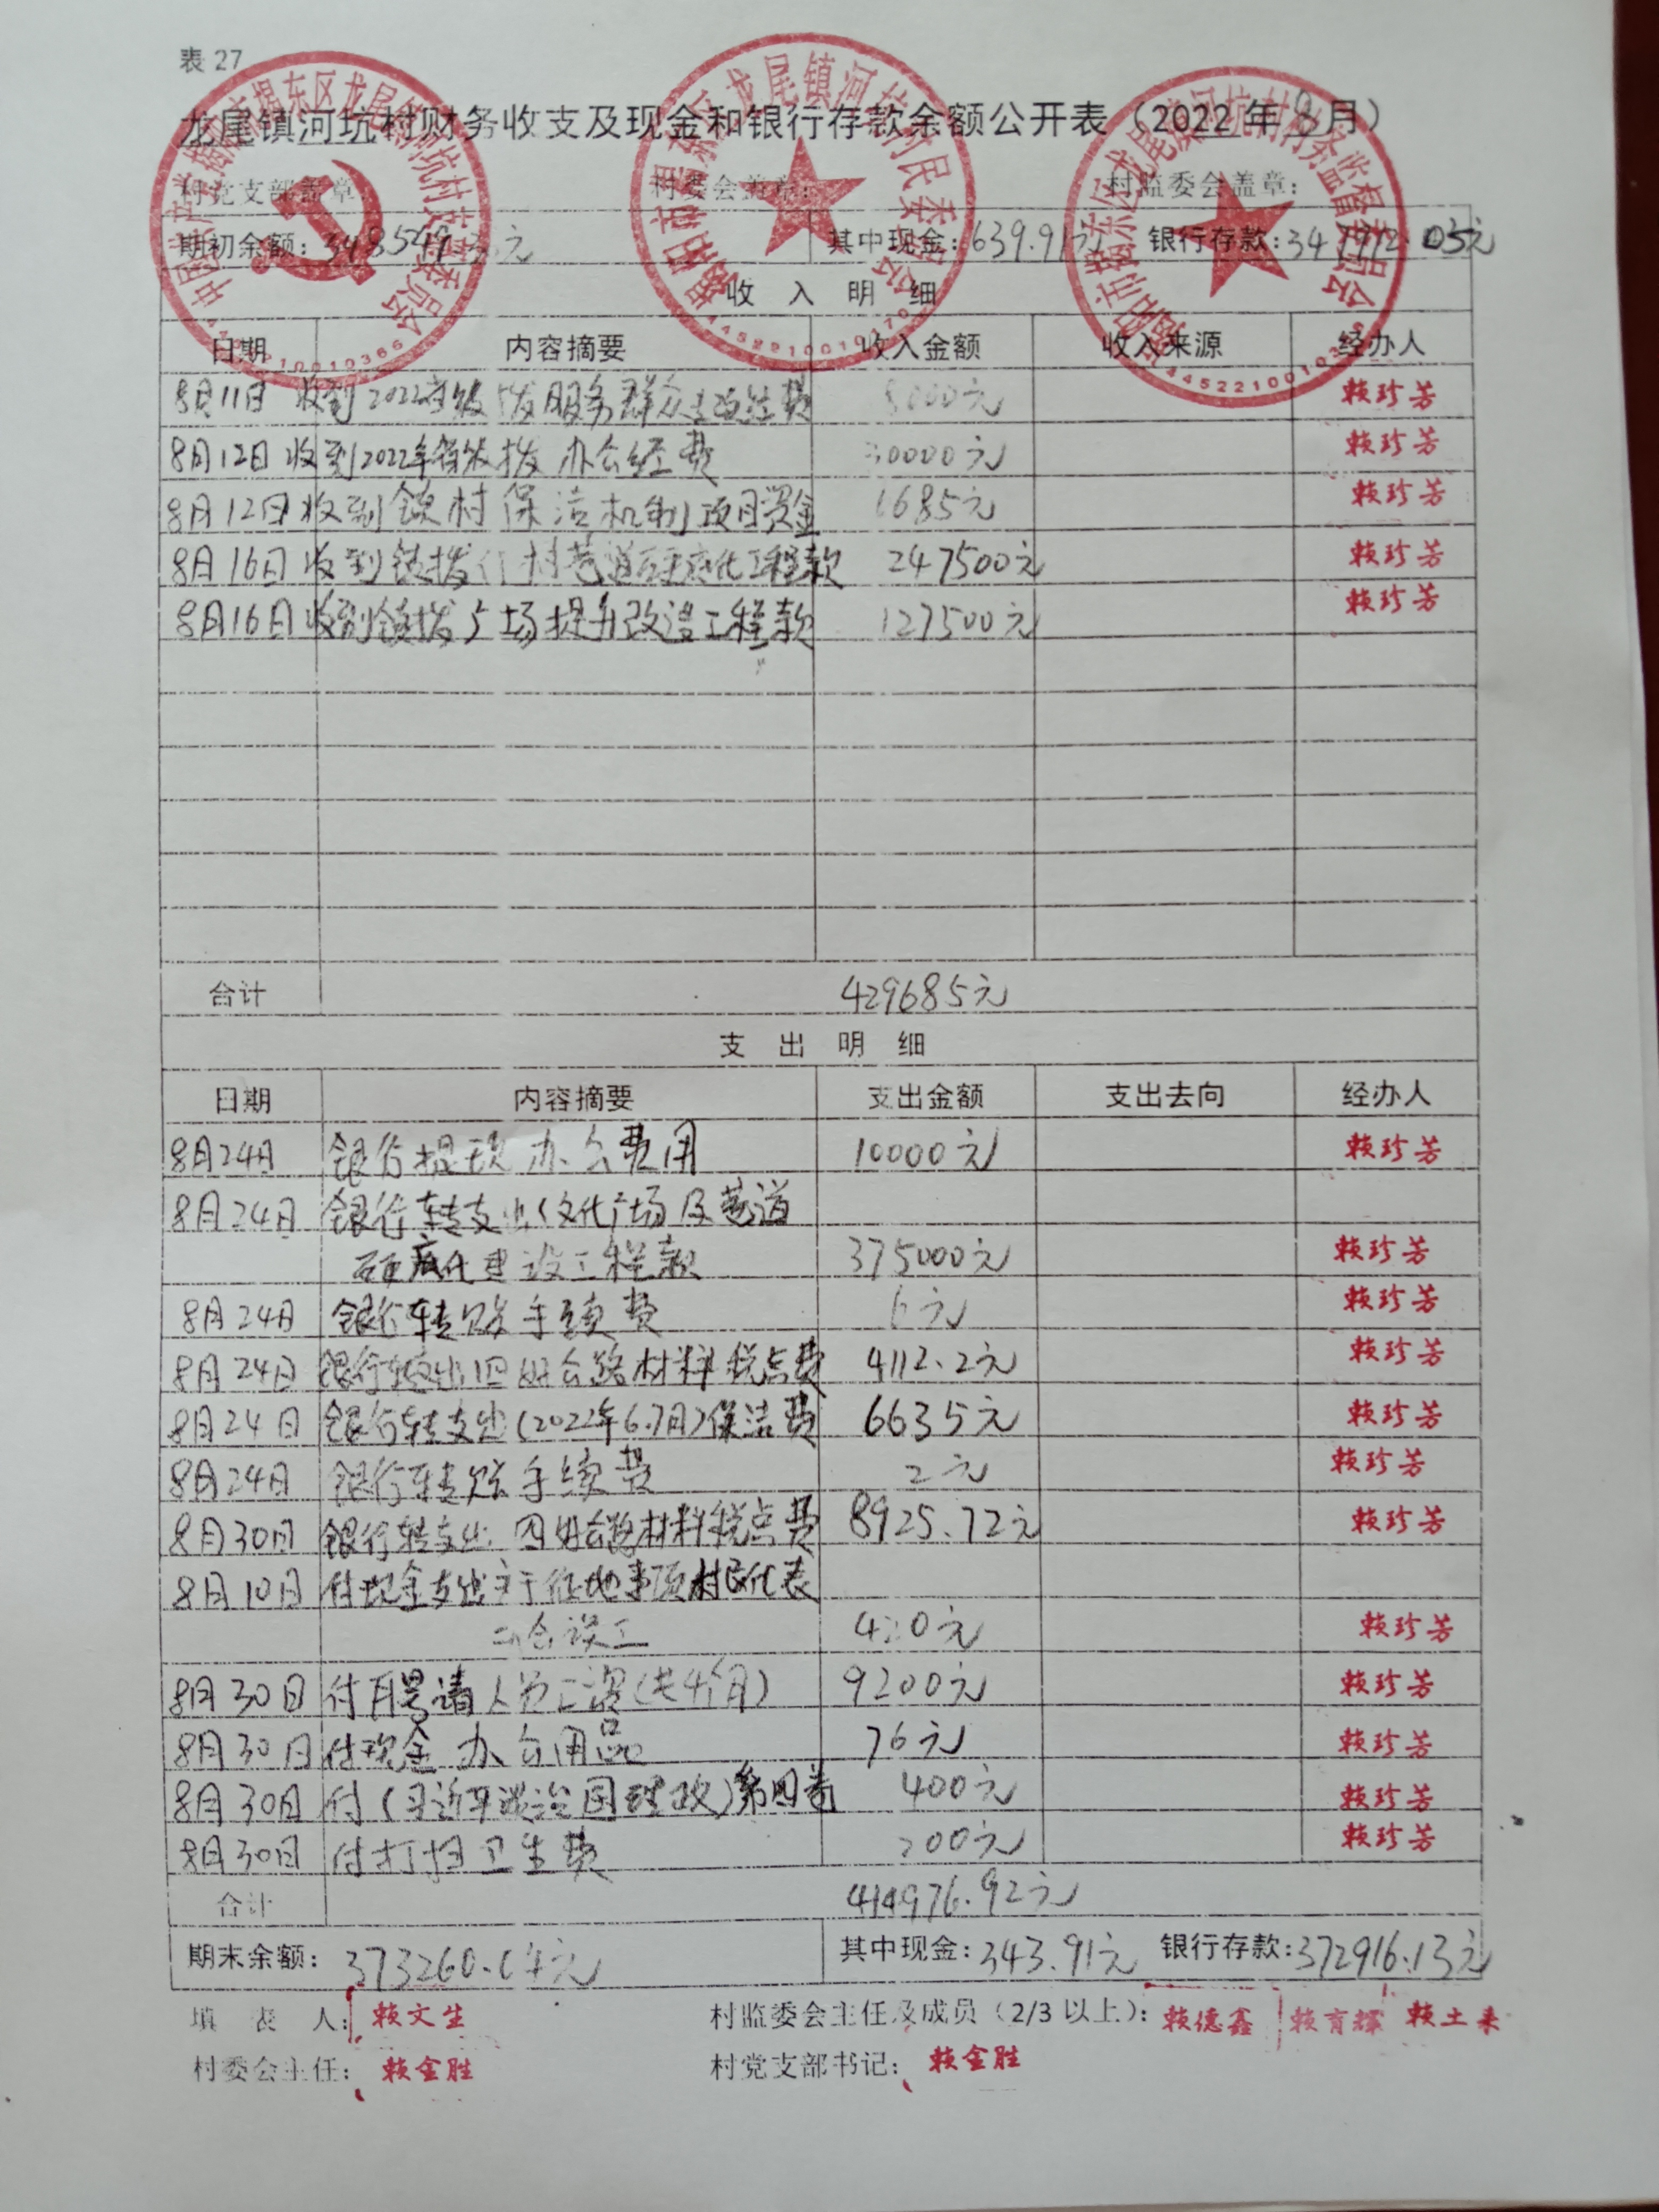 表 27
龙尾镇河坑村财务收支及现金和银行存款余额公开表（2022 年 8 月）
村党支部盖章： 村委会盖章： 村监委会盖章：
期初余额： 元 其中现金：639.91元 银行存款：347912.05元
收 入 明 细
日期 内容摘要 收入金额 收入来源 经办人
8月11日 收到2022 级拨服务群众专项经费 000元 赖珍芳
8月12日 收到2022年省级拨办公经费 0000元 赖珍芳
8月12日 收到镇村保洁机制项目资金 1685元 赖珍芳
8月16日 收到镇拨 村巷道硬底化工程款 247500元 赖珍芳
8月16日 收到镇拨广场提升改造工程款 127500元 赖珍芳
合计 429685元
支 出 明 细
日期 内容摘要 支出金额 支出去向 经办人
8月24日 银行提现办公费用 10000元 赖珍芳
8月24日 银行转支出(文化广场及巷道
硬底化建设工程款 375000元 赖珍芳
8月24日 银行转账手续费 6元 赖珍芳
8月24日 银行转支出四好公路材料税点费 4112.2元 赖珍芳
8月24日 银行转支出(2022年6.7月)保洁费 6635元 赖珍芳
8月24日 银行转账手续费 2元 赖珍芳
8月30日 银行转支出 四好公路材料税点费 8925.72元 赖珍芳
8月10日 付现金支出关于征地事项村民代表
会误工 420元 赖珍芳
8月30日 付聘请人员工资(共4个月) 9200元 赖珍芳
8月30日 付现金办公用品 76元 赖珍芳
8月30日 付(习近平谈治国理政)第四卷 400元 赖珍芳
8月30日 付打扫卫生费 200元 赖珍芳
合计 414976.92元
期末余额：373260.04元 其中现金：343.91元 银行存款：372916.13元
填 表 人：赖文生 村监委会主任及成员（2/3 以上）：赖德鑫 赖育辉 赖土来
村委会主任：赖金胜 村党支部书记：赖金胜